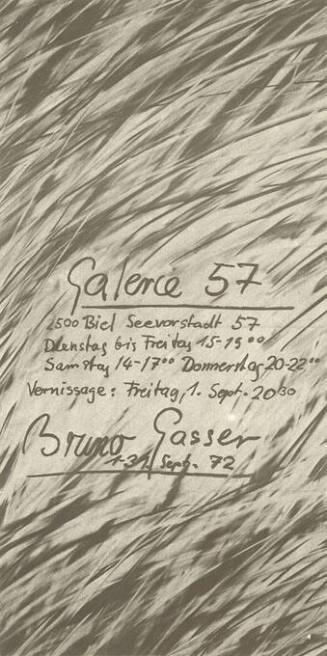 Galerie 57
2500 Biel Seevorstadt 57
Dienstag bis Freitag 15-19⁰⁰
Samstag 14-17⁰⁰ Donnerstag 20-22⁰⁰
Vernissage: Freitag, 1. Sept. 20³⁰
Bruno Gasser
Sept. 72